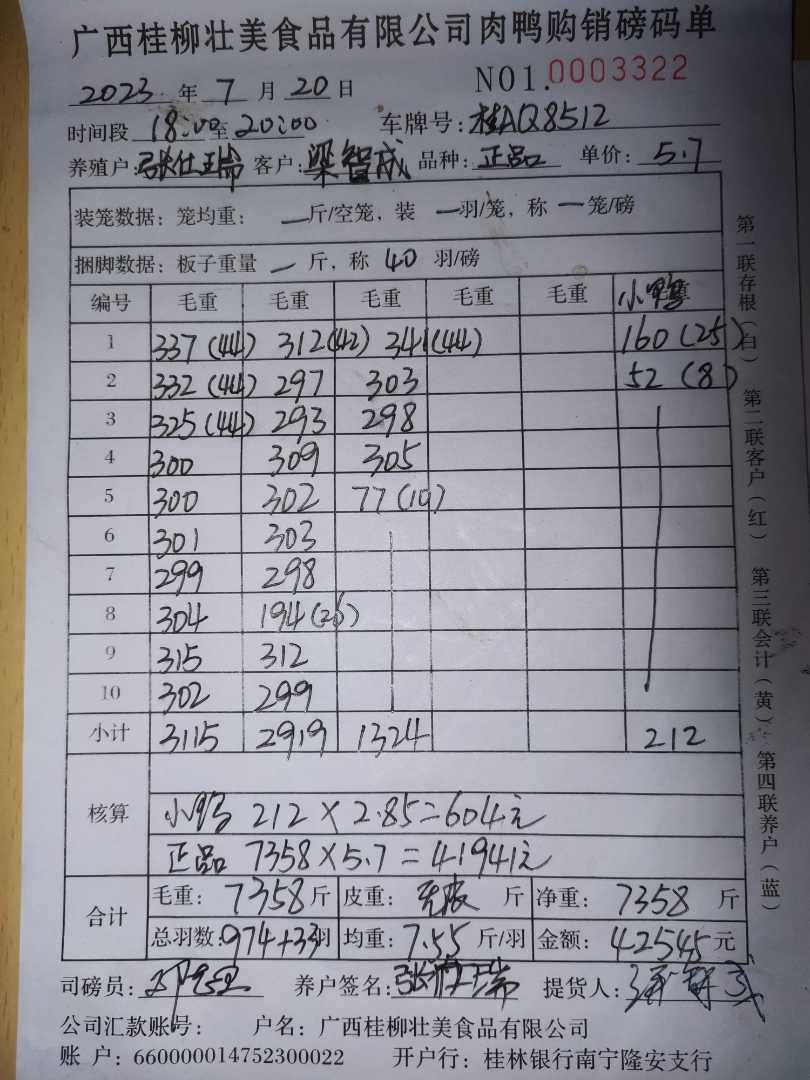 广西桂柳壮美食品有限公司肉鸭购销磅码单
2023 年 7 月 20 日 NO1.0003322
时间段 18:00 至 20:00 车牌号:桂AQ8512
养殖户:张仕瑞 客户:梁智成 品种:正品 单价:5.7
装笼数据:笼均重: 一 斤/空笼,装 一 羽/笼,称 一 笼/磅
捆脚数据:板子重量 一 斤,称 40 羽/磅
编号 毛重 毛重 毛重 毛重 毛重 小鸭
1 337(44) 312(42) 341(44) 160(25)
2 332(44) 297 303 52(8)
3 325(44) 293 298
4 300 309 305
5 300 302 77(10)
6 301 303
7 299 298
8 304 194(26)
9 315 312
10 302 299
小计 3115 2919 1324 212
核算
小鸭 212×2.85=604元
正品 7358×5.7=41941元
合计
毛重: 7358 斤 皮重: 斤 净重: 7358 斤
总羽数:974+33羽 均重:7.55 斤/羽 金额:42545元
司磅员: 养户签名:张仕瑞 提货人:
公司汇款账号: 户名:广西桂柳壮美食品有限公司
账 户:660000014752300022 开户行:桂林银行南宁隆安支行
第一联存根(白)
第二联客户(红)
第三联会计(黄)
第四联养户(蓝)